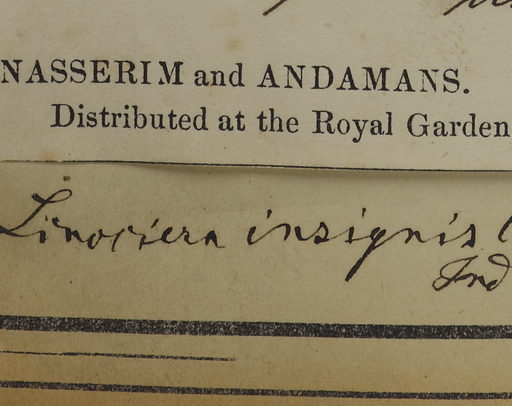 NASSERIM and ANDAMANS.
Distributed at the Royal Garden
Linociera insignis
Ind